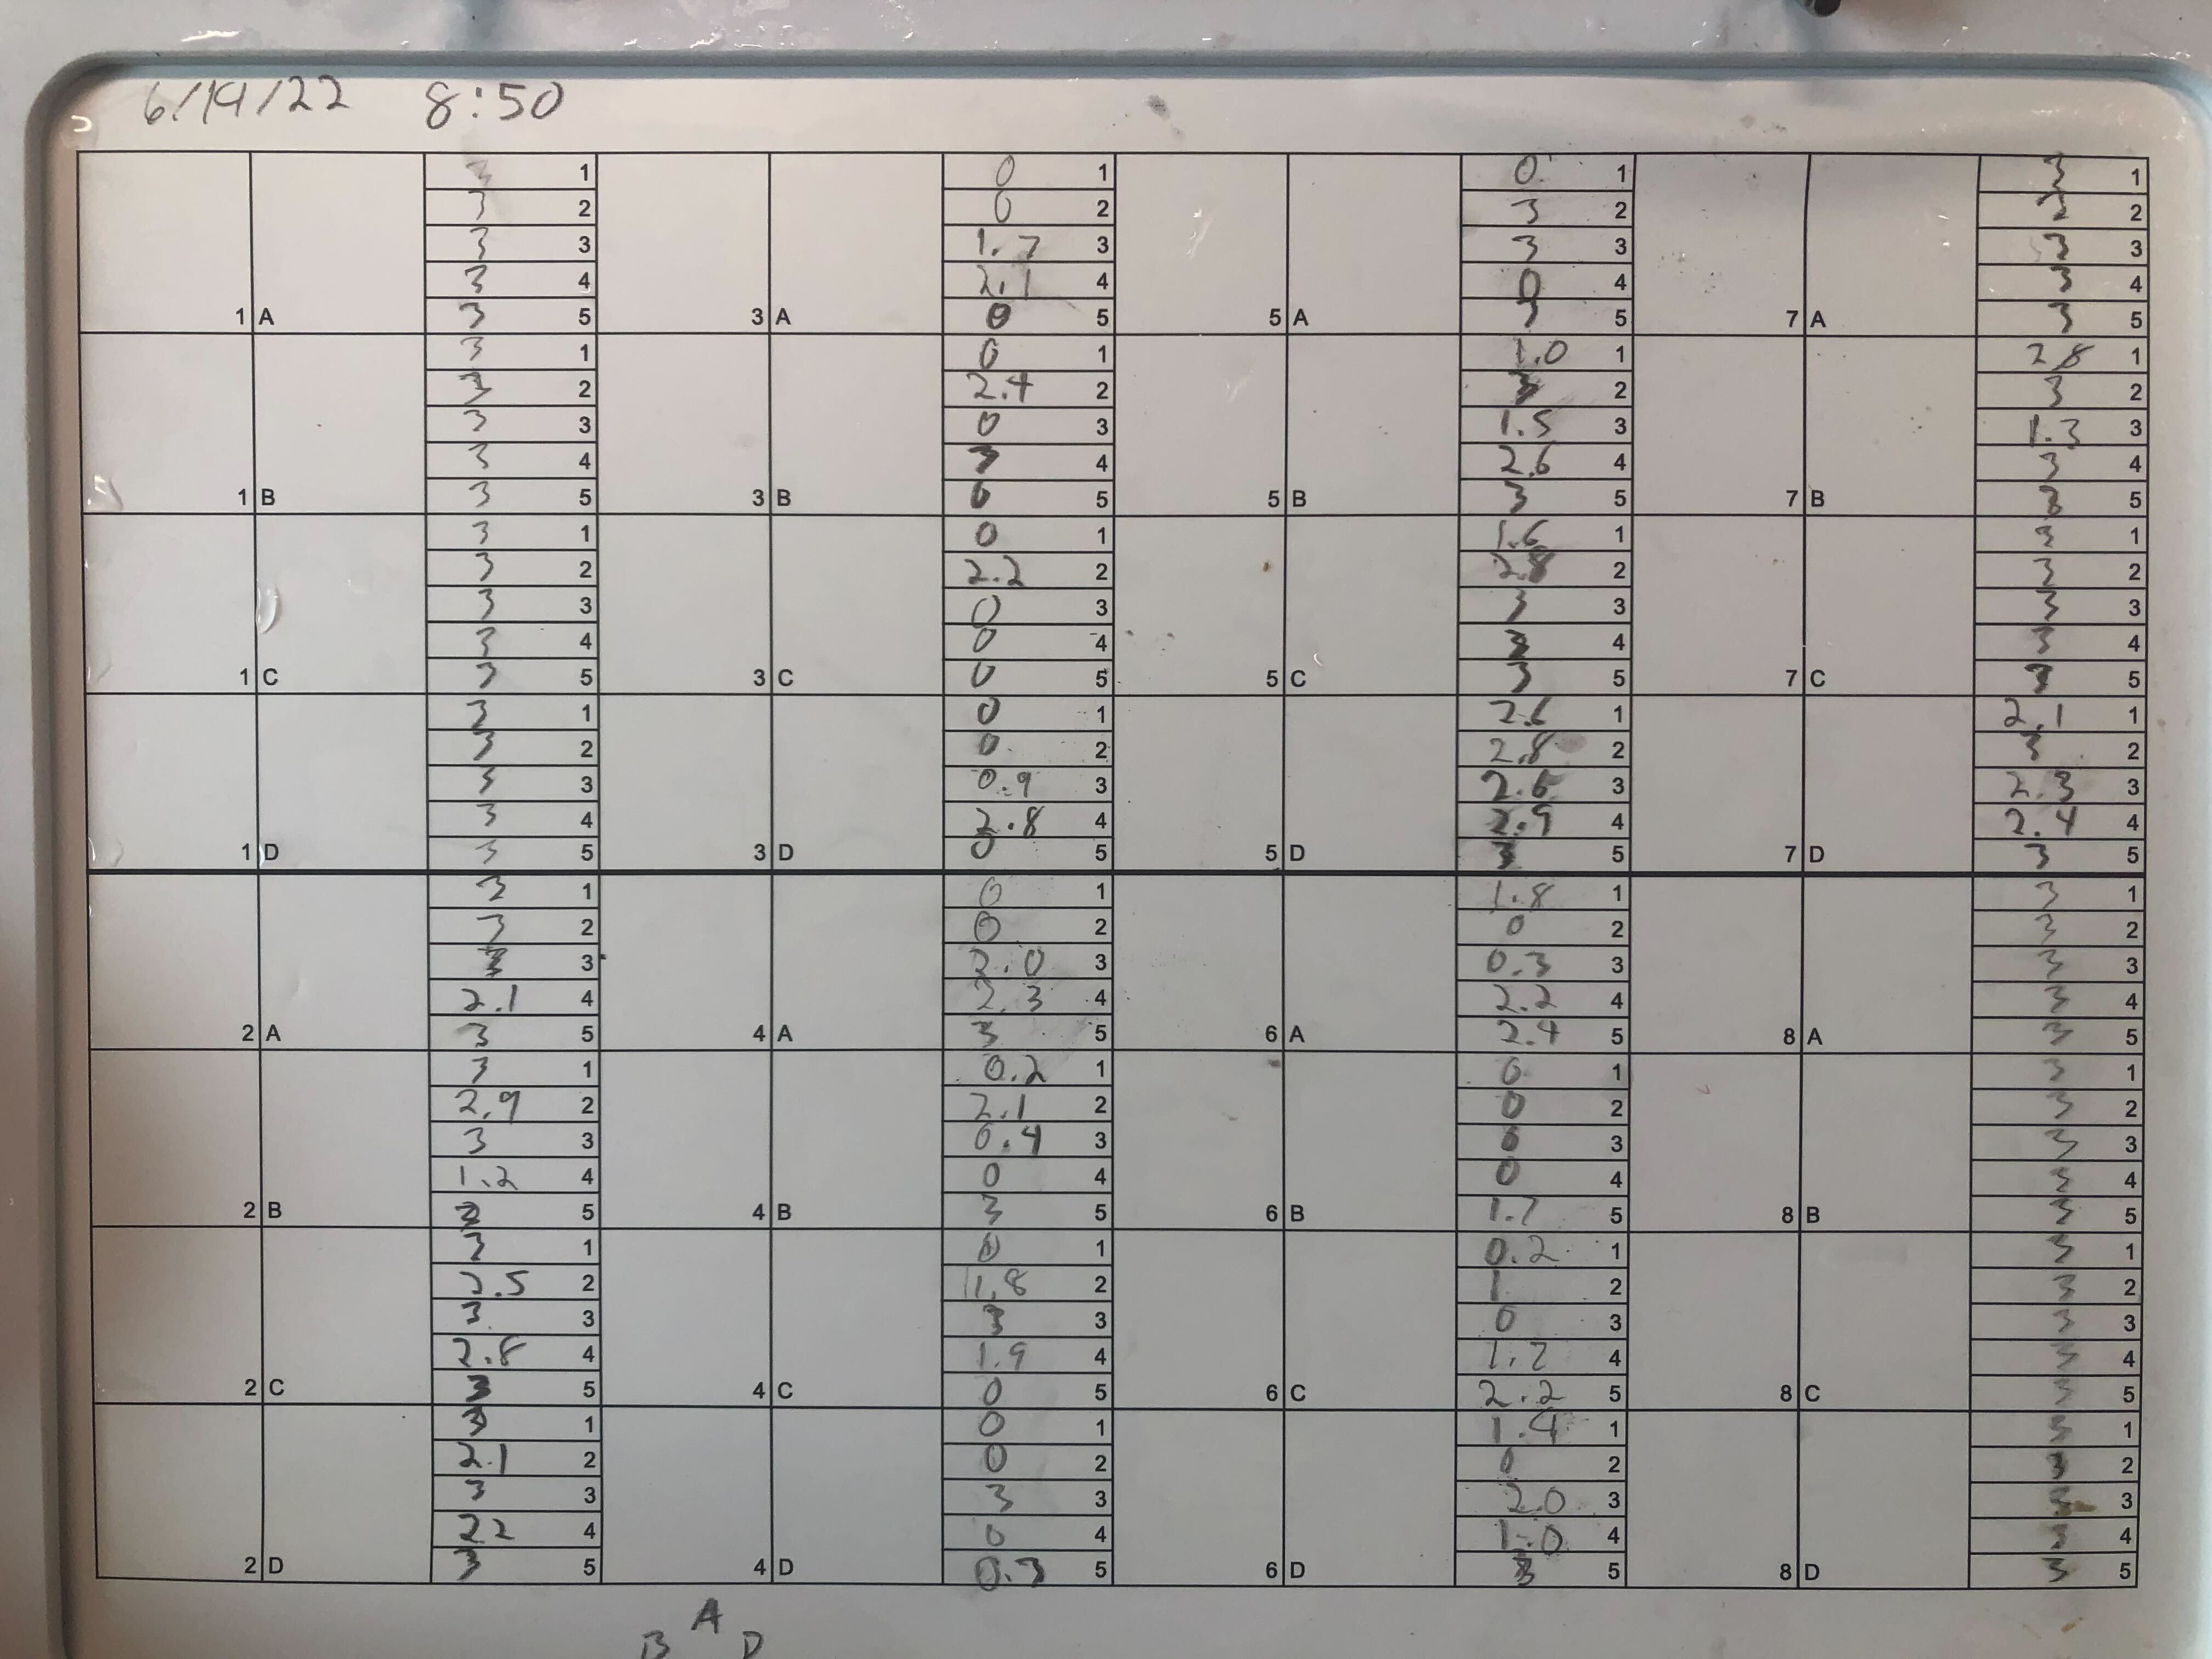 6/19/22 8:50
3 1 0 1 0 1 3 1
3 2 0 2 3 2 3 2
3 3 1.7 3 3 3 3 3
3 4 2.1 4 0 4 3 4
1 A 3 5 3 A 0 5 5 A 3 5 7 A 3 5
3 1 0 1 1.0 1 2.8 1
3 2 2.4 2 3 2 3 2
3 3 0 3 1.5 3 1.3 3
3 4 3 4 2.6 4 3 4
1 B 3 5 3 B 0 5 5 B 3 5 7 B 3 5
3 1 0 1 1.6 1 3 1
3 2 2.2 2 2.8 2 3 2
3 3 0 3 3 3 3 3
3 4 0 4 3 4 3 4
1 C 3 5 3 C 0 5 5 C 3 5 7 C 3 5
3 1 0 1 2.6 1 2.1 1
3 2 0 2 2.8 2 3 2
3 3 0.9 3 2.6 3 2.3 3
3 4 2.8 4 2.9 4 2.4 4
1 D 3 5 3 D 0 5 5 D 3 5 7 D 3 5
3 1 0 1 1.8 1 3 1
3 2 0 2 0 2 3 2
3 3 2.0 3 0.3 3 3 3
2.1 4 2.3 4 2.2 4 3 4
2 A 3 5 4 A 3 5 6 A 2.4 5 8 A 3 5
3 1 0.2 1 0 1 3 1
2.9 2 2.1 2 0 2 3 2
3 3 0.4 3 0 3 3 3
1.2 4 0 4 0 4 3 4
2 B 3 5 4 B 3 5 6 B 1.7 5 8 B 3 5
3 1 0 1 0.2 1 3 1
2.5 2 1.8 2 1 2 3 2
3 3 3 3 0 3 3 3
2.8 4 1.9 4 1.2 4 3 4
2 C 3 5 4 C 0 5 6 C 2.2 5 8 C 3 5
3 1 0 1 1.4 1 3 1
2.1 2 0 2 0 2 3 2
3 3 3 3 2.0 3 3
2.2 4 0 4 1.0 4 3 4
2 D 3 5 4 D 0.3 5 6 D 3 5 8 D 3 5
A
B D